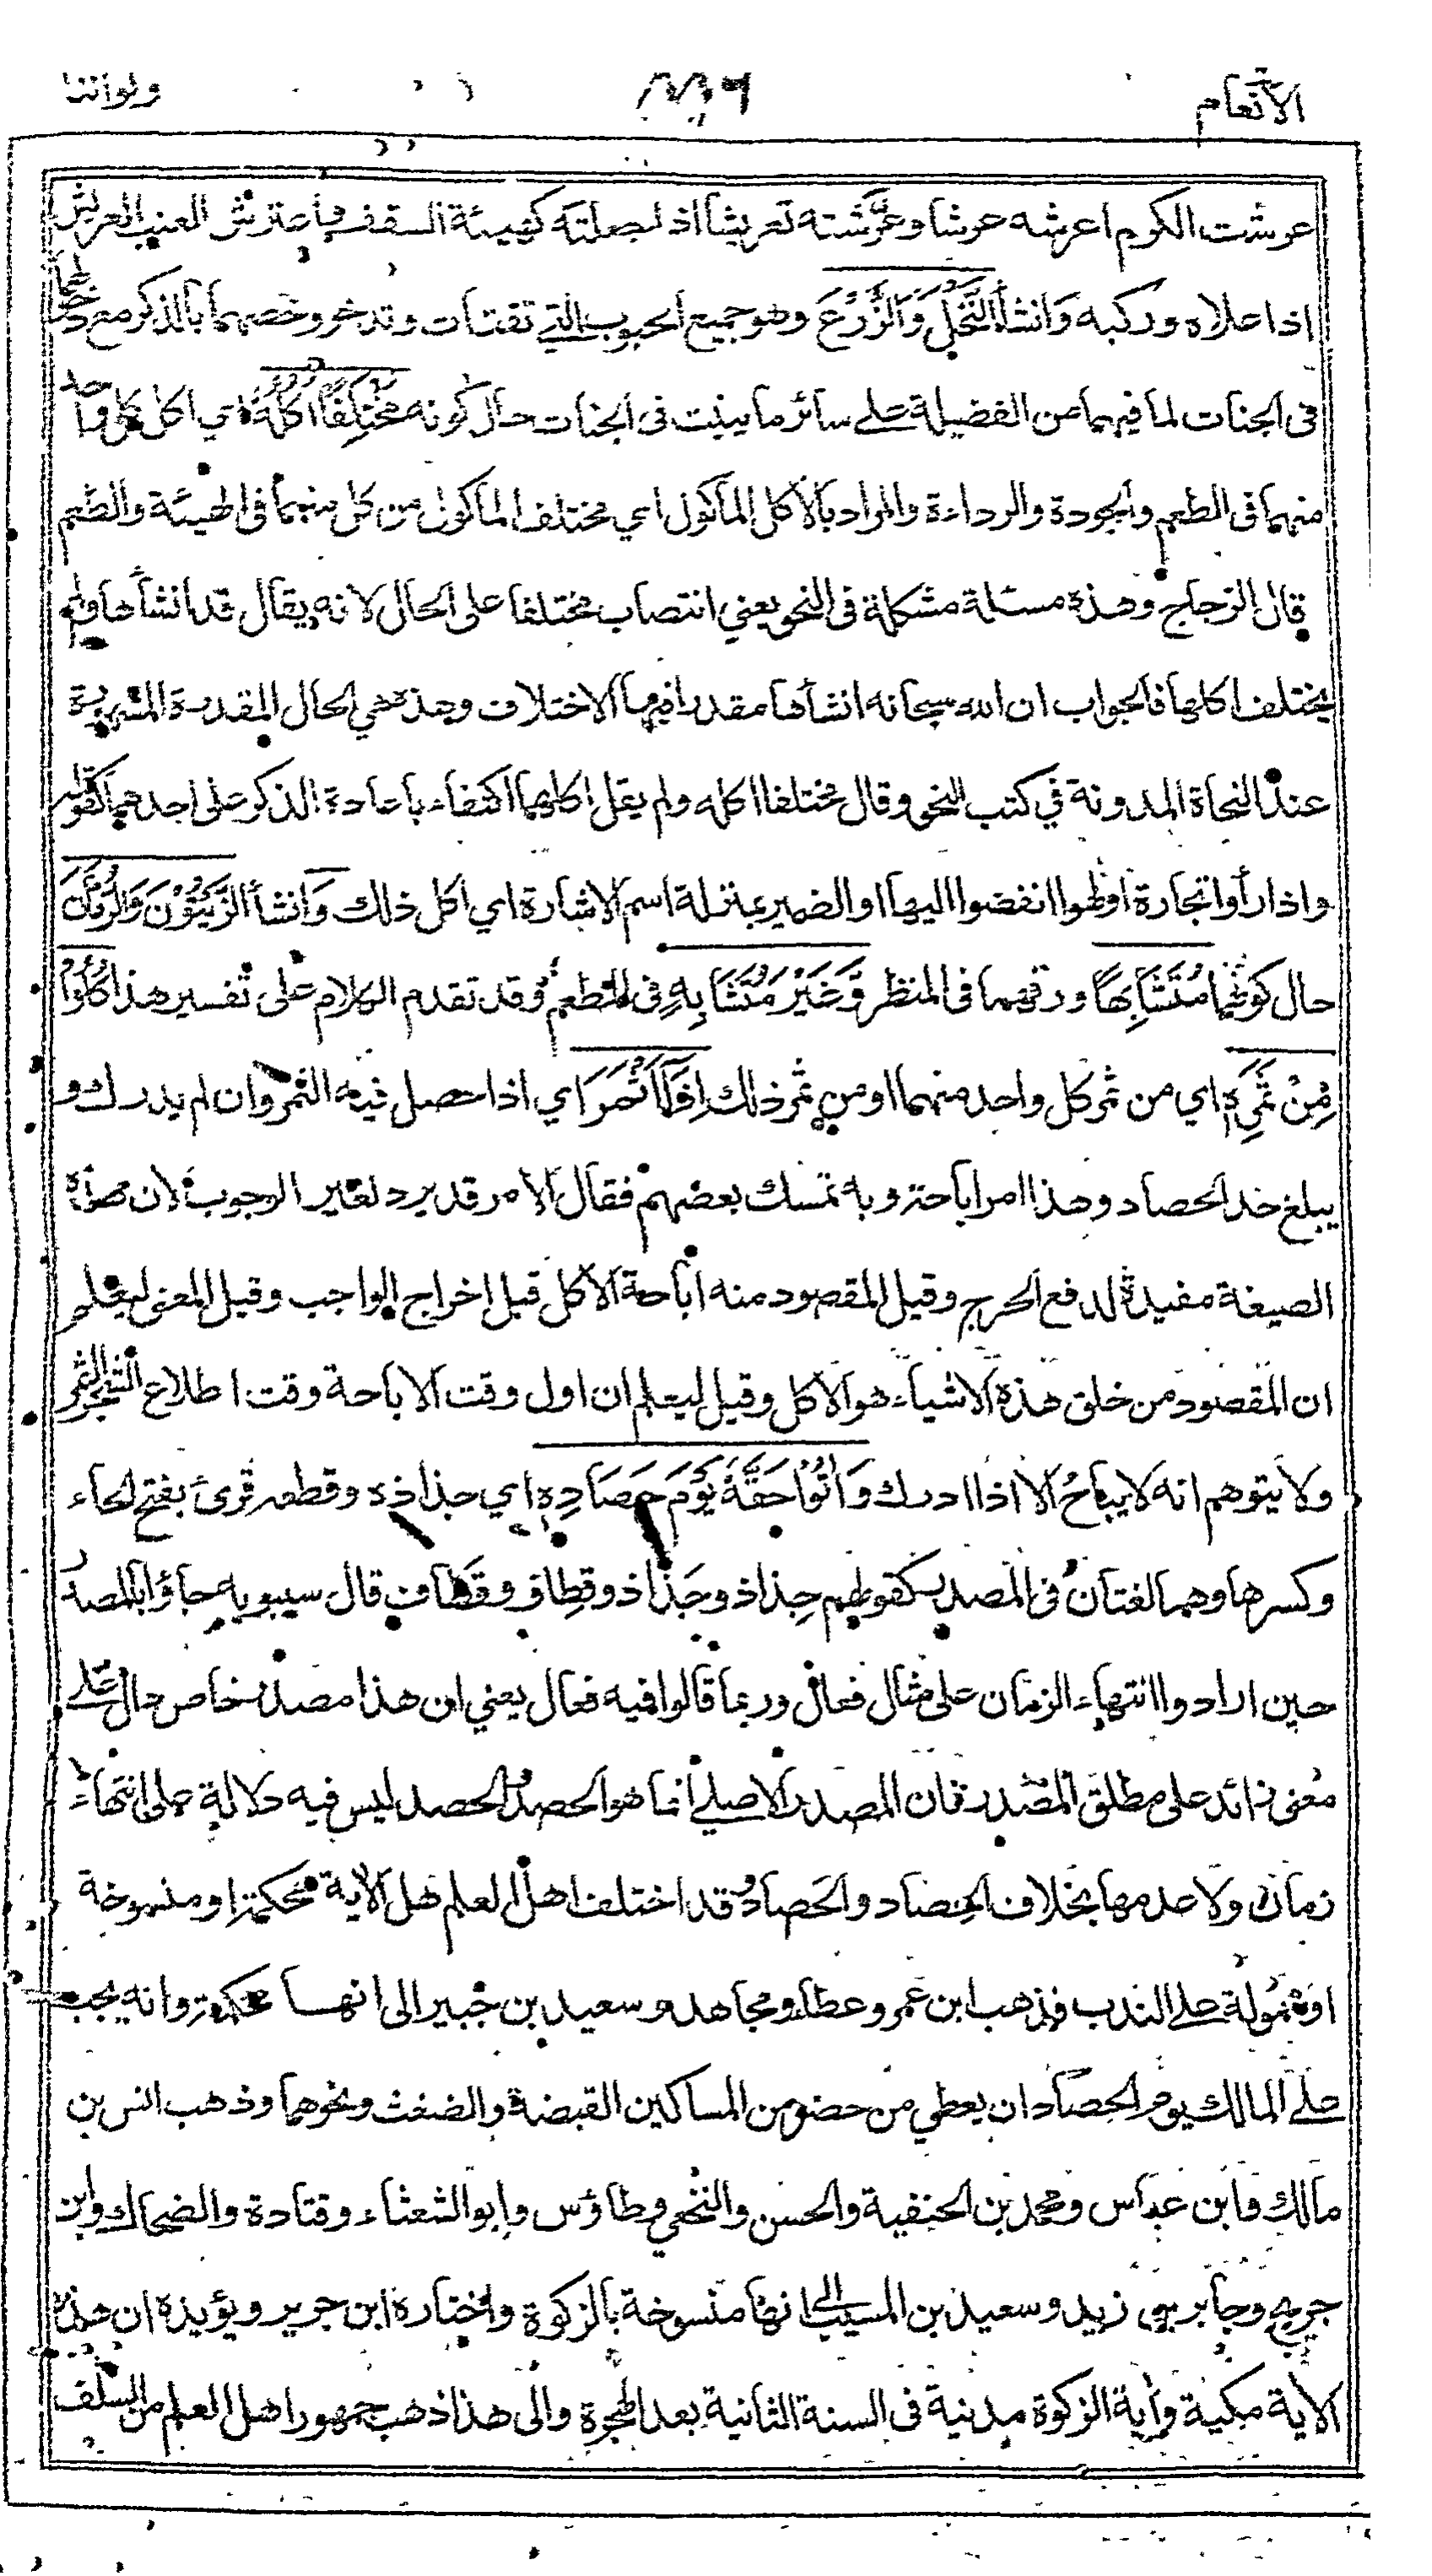 الانعام
ولواننا
عرشت الكرم اعرشه عرشا وعرّشته تعريشا اذا جعلته كهيئة السقف واعترش العنب العريش
اذا علاه وركبه وَانشأ النَّخْلَ وَالزَّرْعَ وهو جميع الحبوب التي تقتات وتدخر وخصهما بالذكر مع دخولهما
فى الجنات لما فيهما من الفضيلة على سائر ما ينبت فى الجنات حال كونه مُخْتَلِفًا اُكُلُهُ اي اكل كل واحد
منهما فى الطعم والجودة والرداءة والمراد بالاكل المأكول اي مختلف المأكول من كل منهما فى الهيئة والطعم
قال الزجاج وهذه مسئلة مشكلة فى النحو يعني انتصاب مختلفا على الحال لانه يقال قد انشأها ولم
يختلف اكلها فالجواب ان الله سبحانه انشأها مقدرا فيها الاختلاف وهذه هي الحال المقدرة المشهورة
عند النحاة المدونة في كتب النحو وقال مختلفا اكله ولم يقل اكلهما اكتفاء باعادة الذكر على احدهما كقوله
واذا رأوا تجارة او لهوا انفضوا اليها او الضمير بمنزلة اسم الاشارة اي اكل ذلك وَانشأ الزَّيْتُوْنَ وَالرُّمَّانَ
حال كونهما مُتَشَابِهًا ورقهما فى المنظر وَّغَيْرَ مُتَشَابِهٍ فى المطعم وقد تقدم الكلام على تفسير هذا كُلُوْا
مِنْ ثَمَرِهٖ اي من ثمر كل واحد منهما او من ثمر ذلك اِذَآ اَثْمَرَ اي اذا حصل فيه الثمر وان لم يدرك و
يبلغ حد الحصاد وهذا امر اباحة وبه تمسك بعضهم فقال الامر قد يرد لغير الوجوب لان هذه
الصيغة مفيدة لدفع الحرج وقيل المقصود منه اباحة الاكل قبل اخراج الواجب وقيل المعنى ليعلم
ان المقصود من خلق هذة الاشياء هو الاكل وقيل ليعلم ان اول وقت الاباحة وقت اطلاع الشجر الثمر
ولا يتوهم انه لا يباح الا اذا ادرك وَاٰتُوْا حَقَّهٗ يَوْمَ حَصَادِهٖ اي جذاذه وقطعه قرئ بفتح الحاء
وكسرها وهما لغتان فى المصدر كقولهم جِذاذ وجَذاذ وقِطاف وقَطاف قال سيبويه جاؤا بالمصدر
حين ارادوا انتهاء الزمان على مثال فعال وربما قالوا فيه فعال يعني ان هذا مصدر خاص دال على
معنى زائد على مطلق المصدر فان المصدر الاصلي انما هو الحصد الحصد ليس فيه دلالة على انتهاء
زمان ولا عدمها بخلاف الحِصاد والحَصاد وقد اختلف اهل العلم هل الاية محكمة او منسوخة
او محمولة على الندب فذهب ابن عمر وعطاء ومجاهد وسعيد بن جبير الى انها محكمة وانه يجب
على المالك يوم الحصاد ان يعطي من حضر من المساكين القبضة والضغث ونحوهما وذهب انس بن
مالك وابن عباس ومحمد بن الحنفية والحسن والنخعي وطاؤس وابو الشعثاء وقتادة والضحاك وابن
جريج وجابر بن زيد وسعيد بن المسيب الى انها منسوخة بالزكوة واختاره ابن جرير ويؤيده ان هذه
الاية مكية وأية الزكوة مدنية فى السنة الثانية بعد الهجرة والى هذا ذهب جمهور اهل العلم من السلف